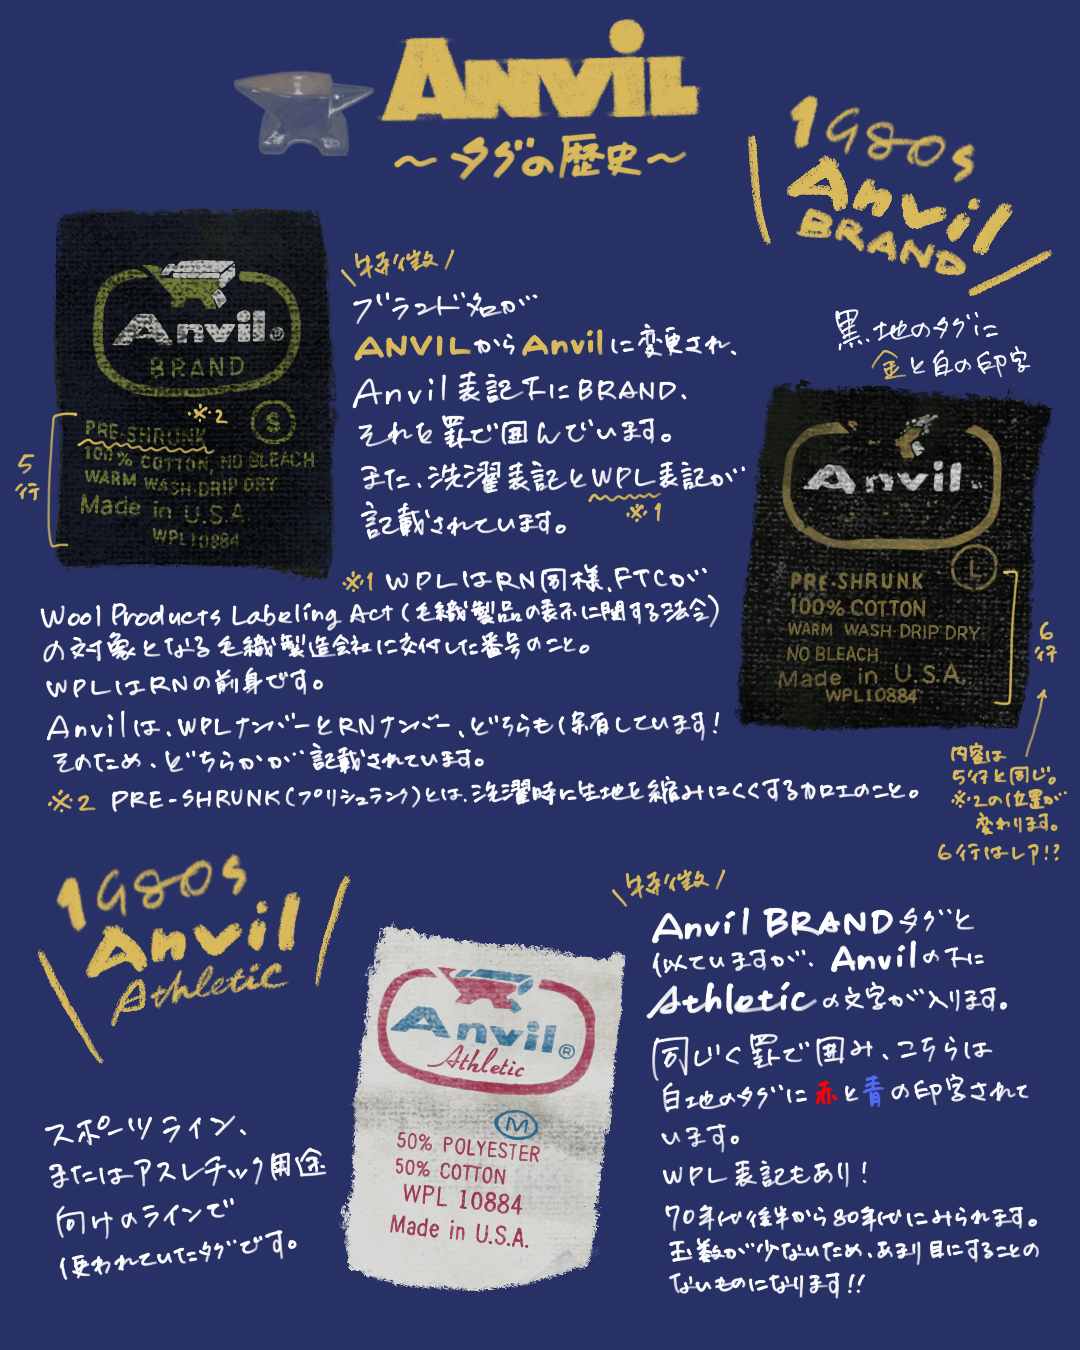 ANViL
〜タグの歴史〜
1980s
Anvil
BRAND
Anvil®
BRAND
※2
S
PRE-SHRUNK
100% COTTON, NO BLEACH
WARM WASH·DRIP DRY
Made in U.S.A
WPL10884
5
行
\特徴/
ブランド名が
ANVILからAnvilに変更され、
Anvil表記下にBRAND、
それを罫で囲んでいます。
また、洗濯表記とWPL表記が
※1
記載されています。
黒地のタグに
金と白の印字
Anvil
L
PRE-SHRUNK
100% COTTON
WARM WASH·DRIP DRY
NO BLEACH
Made in U.S.A.
WPL10884
6
行
内容は
5行と同じ。
※2の位置が
変わります。
6行はレア!?
※1 WPLはRN同様、FTCが
Wool Products Labeling Act(毛織製品の表示に関する法令)
の対象となる毛織製造会社に交付した番号のこと。
WPLはRNの前身です。
Anvilは、WPLナンバーとRNナンバー、どちらも保有しています!
そのため、どちらかが記載されています。
※2 PRE-SHRUNK(プリシュランク)とは、洗濯時に生地を縮みにくくするカロエのこと。
1980s
Anvil
Athletic
スポーツライン、
またはアスレチック用途
向けのラインで
使われていたタグです。
Anvil®
Athletic
M
50% POLYESTER
50% COTTON
WPL 10884
Made in U.S.A.
\特徴/
Anvil BRANDタグと
似ていますが、Anvilの下に
Athleticの文字が入ります。
同じく罫で囲み、こちらは
白地のタグに赤と青の印字されて
います。
WPL表記もあり!
70年代後半から80年代にみられます。
玉数が少ないため、あまり目にすることの
ないものになります!!